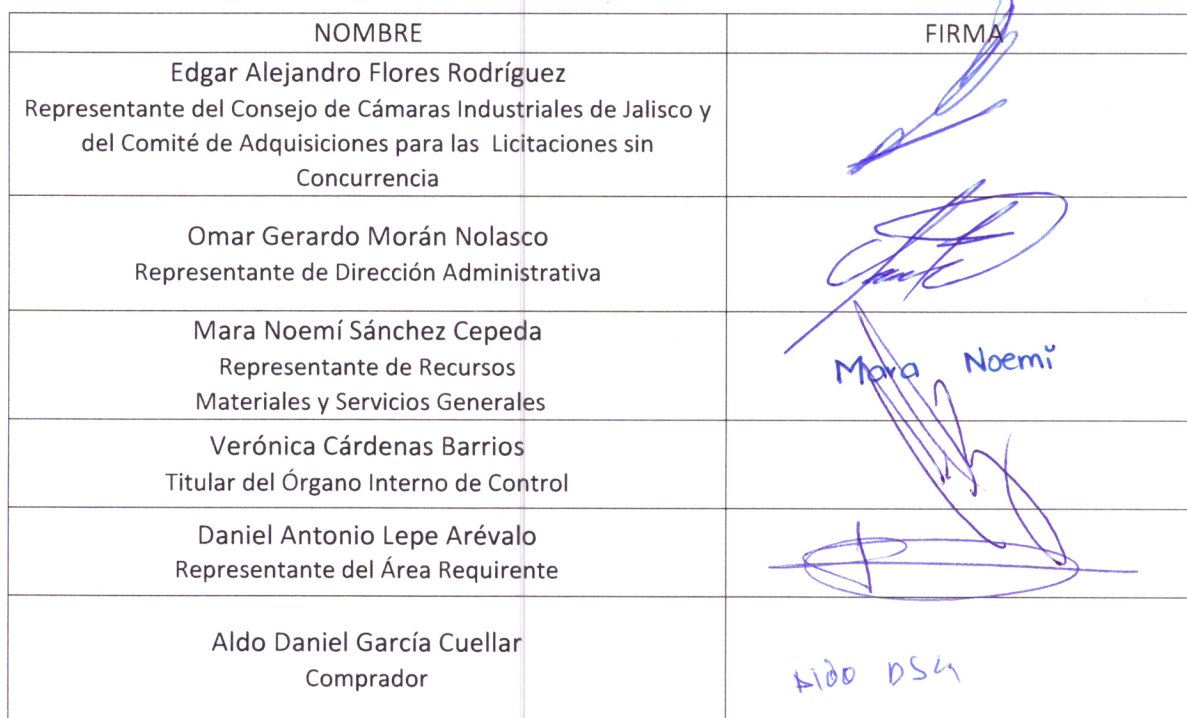 NOMBRE
FIRMA
Edgar Alejandro Flores Rodríguez
Representante del Consejo de Cámaras Industriales de Jalisco y
del Comité de Adquisiciones para las Licitaciones sin
Concurrencia
Omar Gerardo Morán Nolasco
Representante de Dirección Administrativa
Mara Noemí Sánchez Cepeda
Representante de Recursos
Materiales y Servicios Generales
Mara Noemí
Verónica Cárdenas Barrios
Titular del Órgano Interno de Control
Daniel Antonio Lepe Arévalo
Representante del Área Requirente
Aldo Daniel García Cuellar
Comprador
Aldo